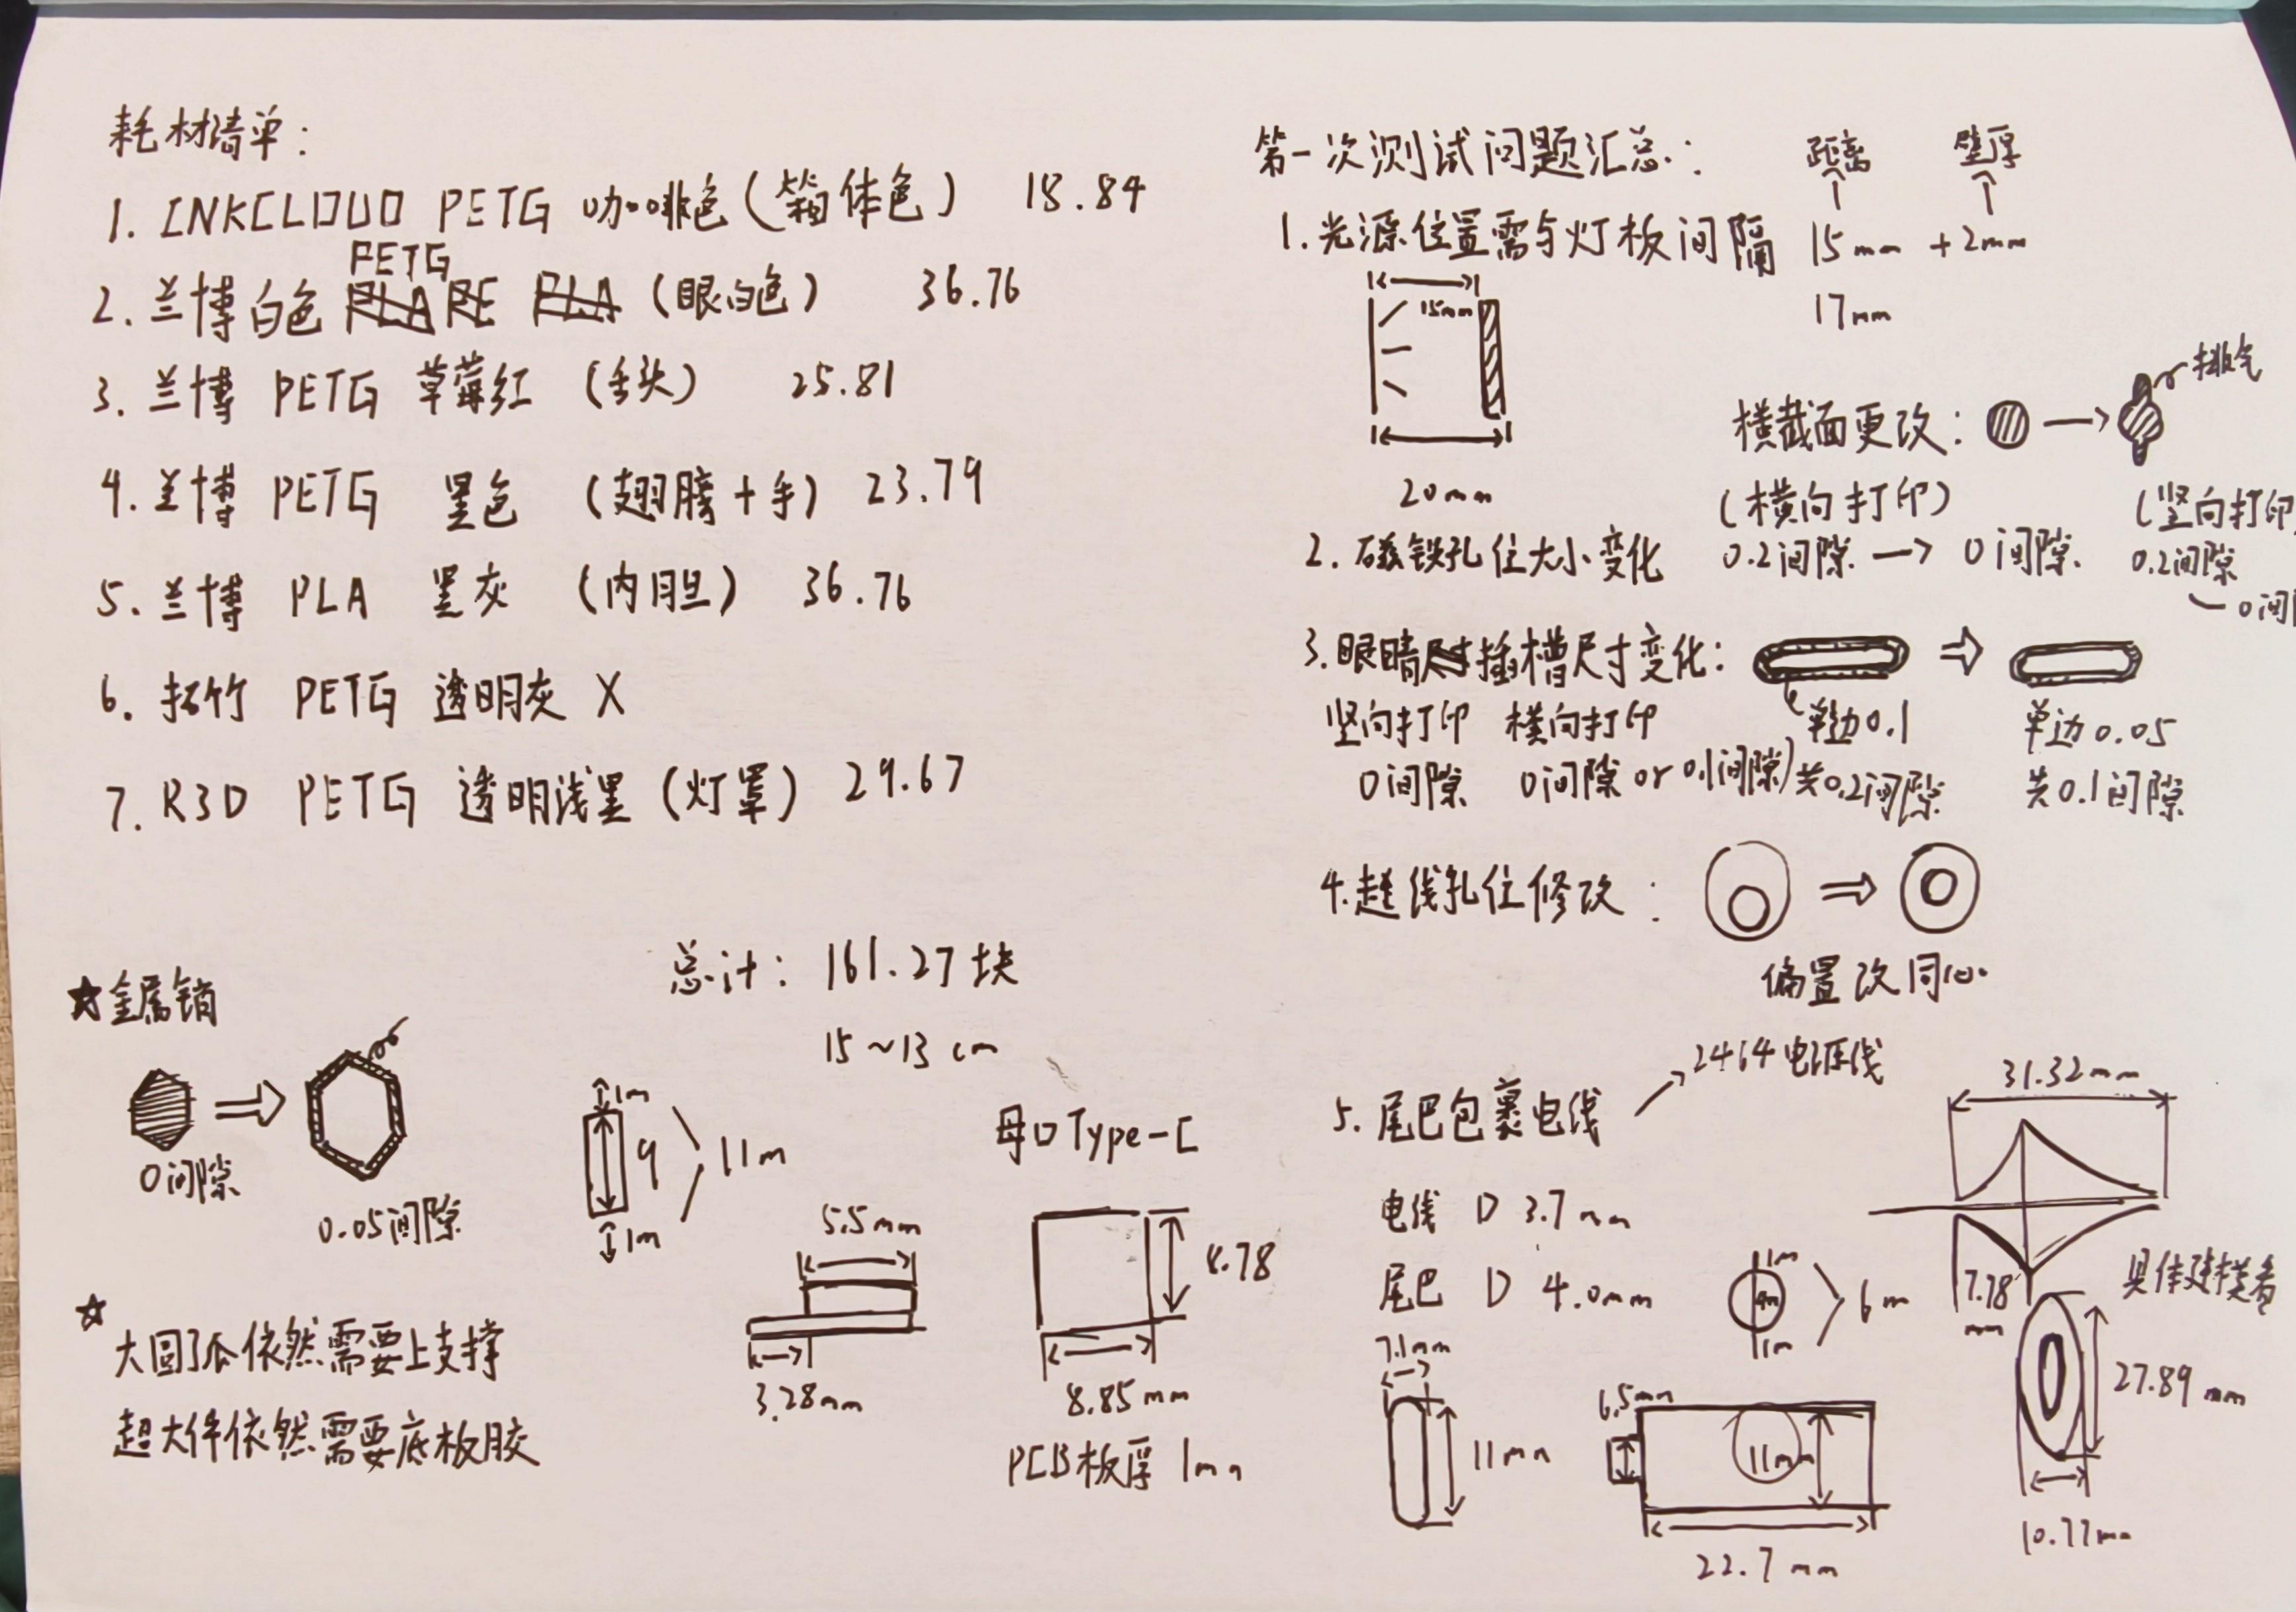 耗材清单:
1. INKCLOUD PETG 咖啡色(箱体色) 18.84
PETG
2. 兰博白色 (眼白色) 36.76
3. 兰博 PETG 草莓红 (舌头) 25.81
4. 兰博 PETG 黑色 (翅膀+手) 23.79
5. 兰博 PLA 黑灰 (内胆) 36.76
6. 拓竹 PETG 透明灰 X
7. R3D PETG 透明浅黑 (灯罩) 29.67
总计: 161.27块
15~13 cm
☆金属销
0间隙
0.05间隙
1m
9
11m
1m
母口Type-C
5.5mm
3.28mm
4.78
8.85mm
PCB板厚 1mm
☆
大圆弧依然需要上支撑
超大件依然需要底板胶
第一次测试问题汇总:
距离 壁厚
1. 光源位置需与灯板间隔 15mm +2mm
17mm
15mm
20mm
排气
横截面更改:
(横向打印) (竖向打印
2. 磁铁孔位大小变化 0.2间隙 → 0间隙. 0.2间隙
0间
3. 眼睛插槽尺寸变化:
竖向打印 横向打印 单边0.1 单边0.05
0间隙 0间隙 or 0.1间隙) 共0.2间隙 共0.1间隙
4. 走线孔位修改:
偏置改同心
5. 尾巴包裹电线
2464电源线
31.32mm
电线 D 3.7mm
尾巴 D 4.0mm
1m
4m
1m
6m
7.78
mm
具体建模看
27.89 mm
10.77mm
7.1mm
11mm
6.5mm
11mm
22.7 mm